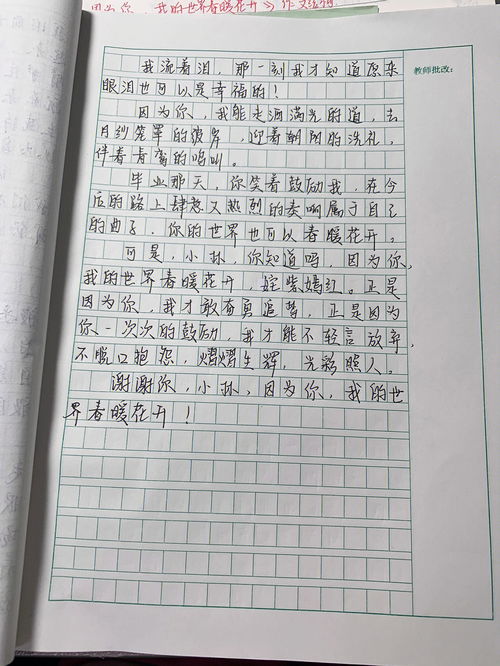 因为你，我的世界春暖花开
教师批改：
我流着泪，那一刻我才知道原来
眼泪也可以是幸福的！
因为你，我能走洒满光的道，去
月纱笼罩的彼岸，迎着朝阳的洗礼，
伴着青鸾的鸣叫。
毕业那天，你笑着鼓励我，在今
后的路上肆意又热烈的奏响属于自己
的曲子，你的世界也可以春暖花开。
可是，小孙，你知道吗，因为你，
我的世界春暖花开，姹紫嫣红。正是
因为你，我才敢奋勇追梦，正是因为
你一次次的鼓励，我才能不轻言放弃，
不脱口抱怨，熠熠生辉，光彩照人。
谢谢你，小孙，因为你，我的世
界春暖花开！